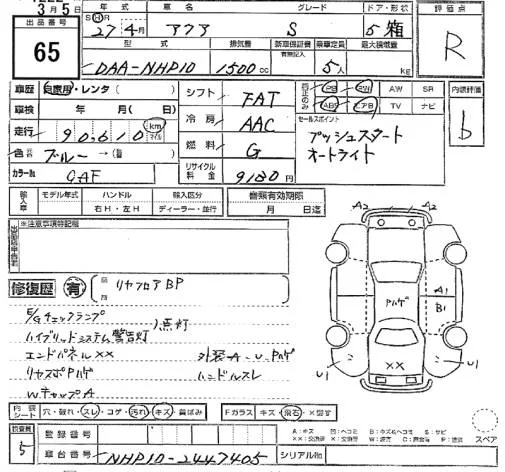 3月5日
出品番号 65
年式 グレード ドア・形状 評価点
S H 27年4月 アクア S 5 箱 R
型式 排気量 新車保証書 乗車定員 最大積載量
DAA-NHP10 1500cc 有無記入 5人 kg
車歴 自家用・レンタ( ) シフト FAT
純正のみ PS PW AW SR 内装評価
車検 年 月( 日) 冷房 AAC ABS エアB TV ナビ b
走行 90,610 km マイル
セールスポイント
プッシュスタート
オートライト
色 ブルー →( ) 燃料 G
カラーNo GAF リサイクル料金 9180円
輸入車 モデル年式 ハンドル 輸入区分 音頭有効期限
右H・左H ディーラー・並行 月 日迄
※注意事項特記欄
修復歴 有 リヤフロアBP
E/Gチェックランプ
ハイブリッドシステム警告灯 点灯
エンドパネル×× 外装A・U・Pハゲ
リヤスポPハゲ ハンドルスレ
WキャップA
A2 A2
Pハゲ A1
B1
U1 ×× U1
内装シート 穴・破れ・スレ・コゲ・汚れ・キズ・黄ばみ Fガラス キズ・飛石・×要す
検査員 5 登録番号
A:キズ U:ヘコミ B:キズ&ヘコミ S:サビ
スペア
車台番号 NHP10-2447405 シリアルNo